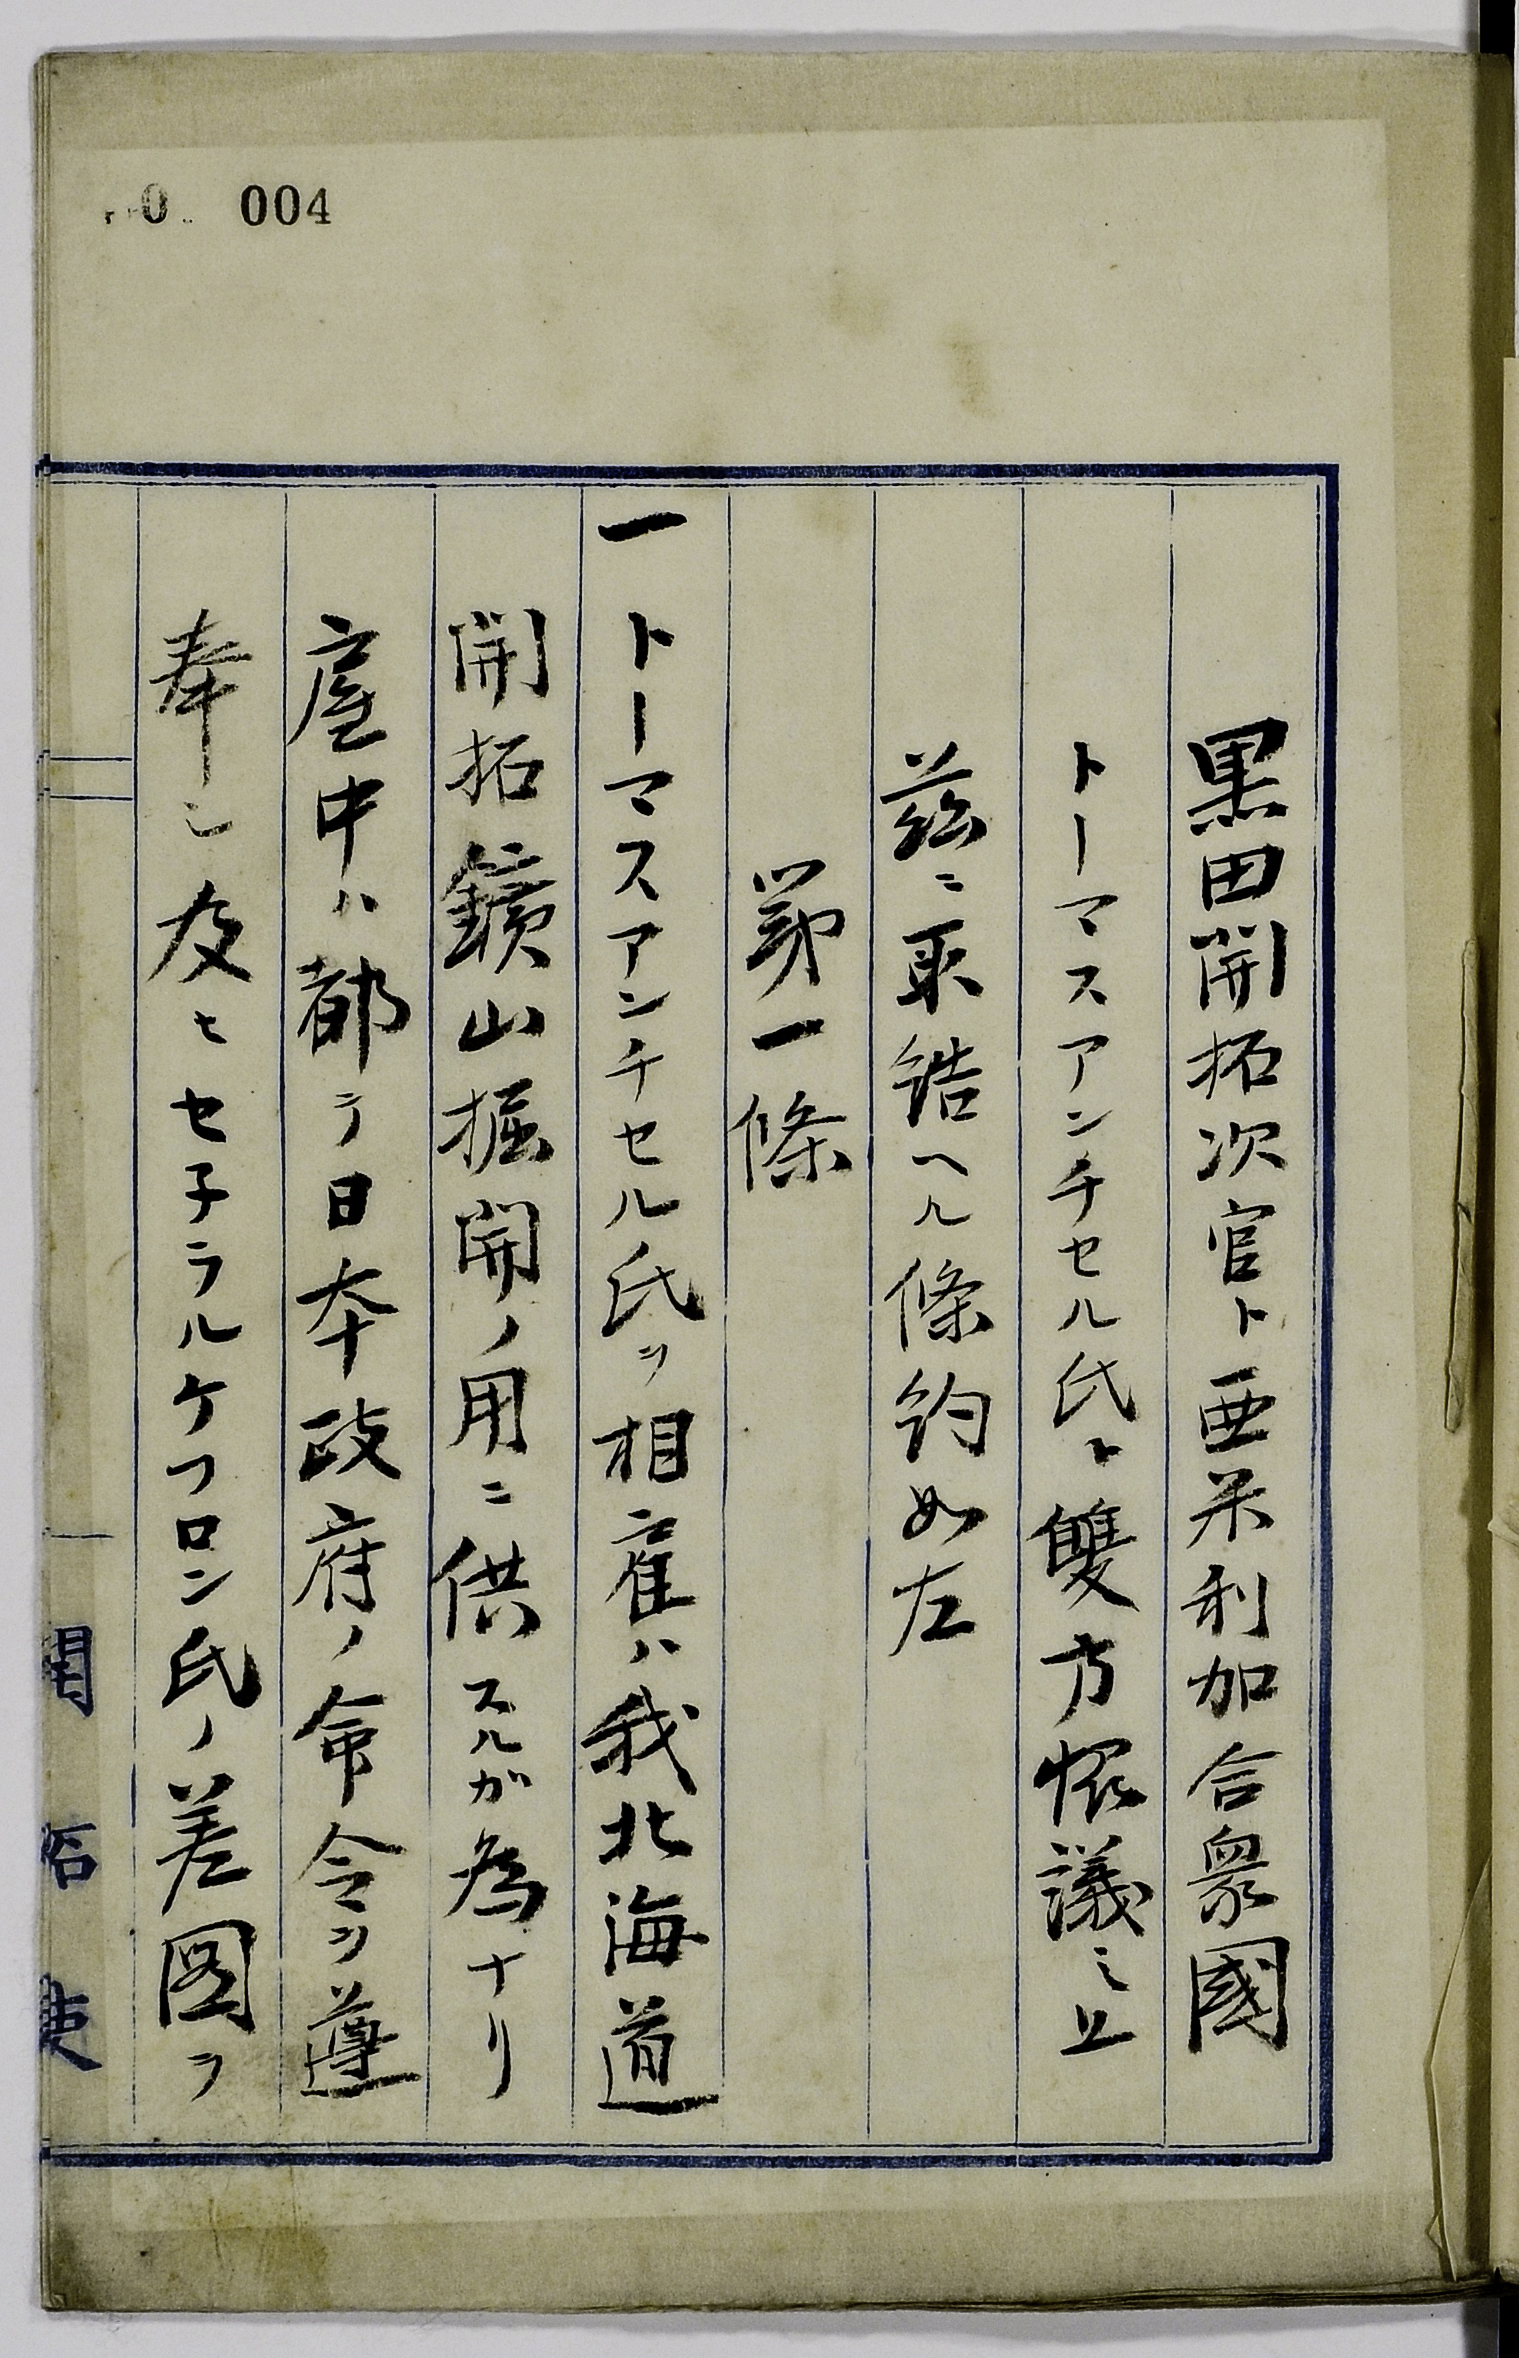 004
黒田開拓次官ト亜米利加合衆國
トーマスアンチセル氏ト雙方懇議之上
茲ニ取結ヘル條約如左
第一條
一トーマスアンチセル氏ヲ相雇ハ我北海道
開拓鑛山掘開ノ用ニ供スルガ為ナリ
雇中ハ都テ日本政府ノ命令ヲ遵
奉シ及ヒセ子ラルケフロン氏ノ差図ヲ
開拓使